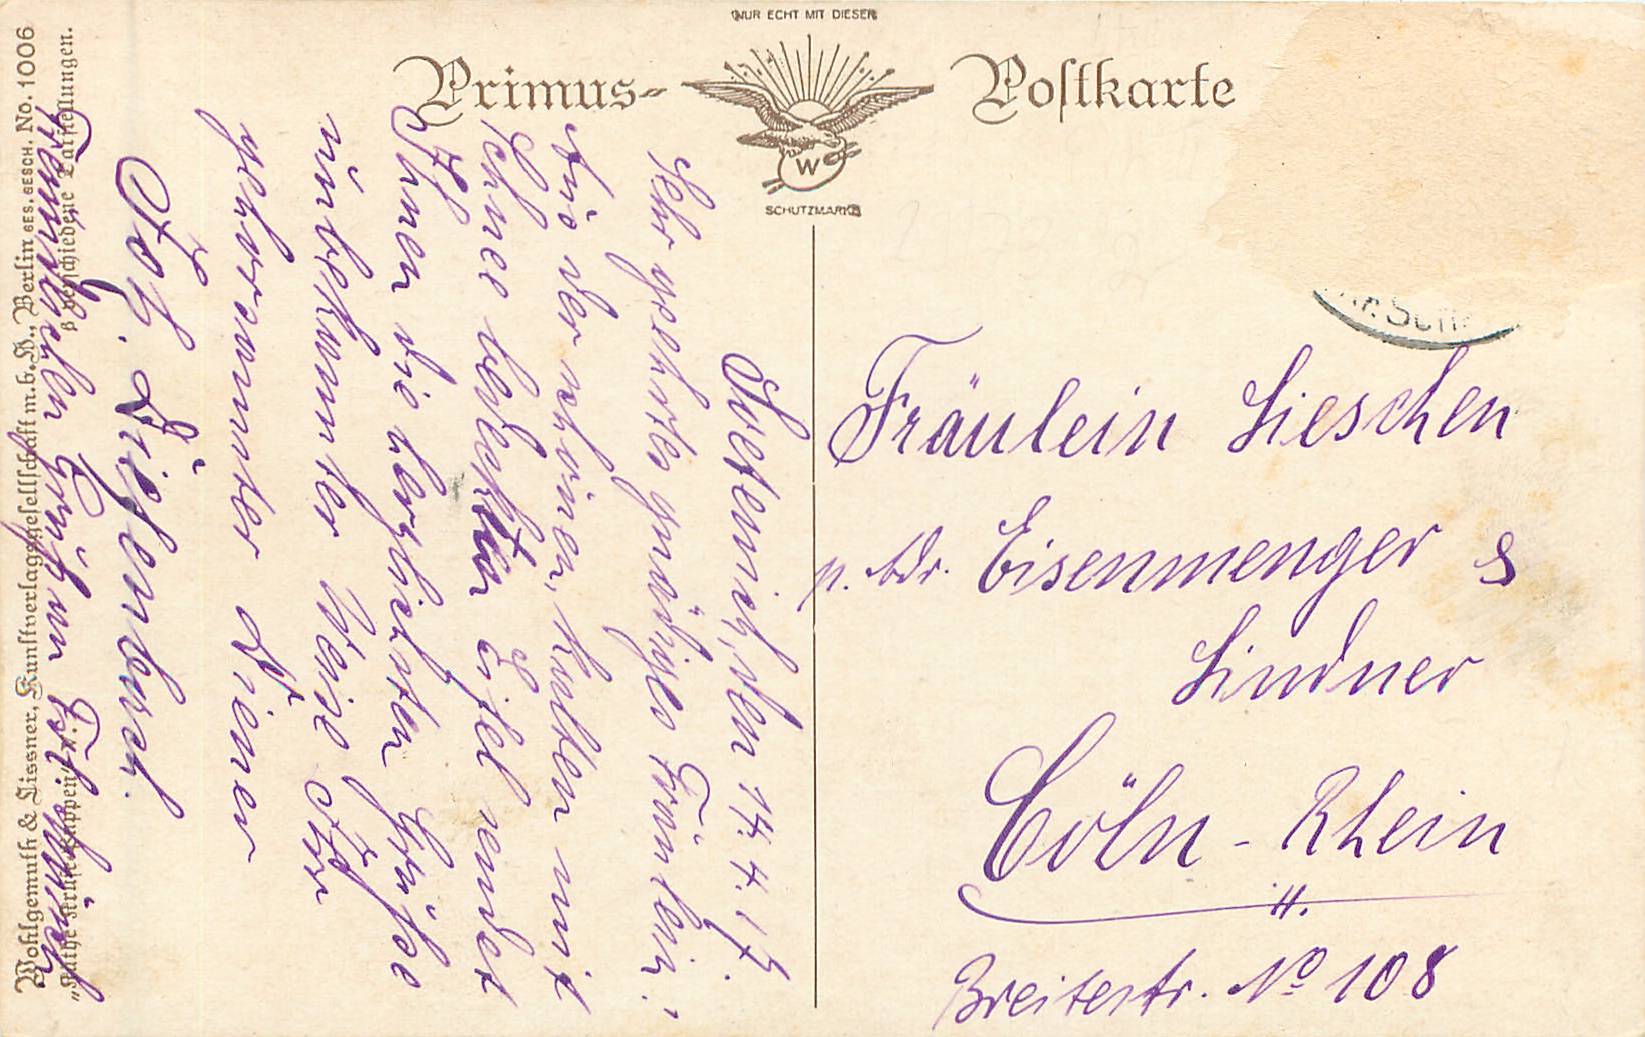 NUR ECHT MIT DIESER
Primus- Postkarte
W
SCHUTZMARKE
Wohlgemuth & Lissner, Kunstverlagsgesellschaft m.b.H., Berlin GES. GESCH. No. 1006
„Käthe Kruse-Puppen“. 6 verschiedene Darstellungen.
Soetenich, den 14.4.17.
Sehr geehrtes gnädiges Fräulein!
Aus der schönen, kalten mit
Schnee bedeckten Eifel sendet
Ihnen die herzlichsten Grüße
unbekannter Weise Ihr
gehorsamster Diener
Joh.
Grüßen
Fräulein Lieschen
p. Adr. Eisenmenger &
Lindner
Cöln - Rhein
Breitestr. No 108